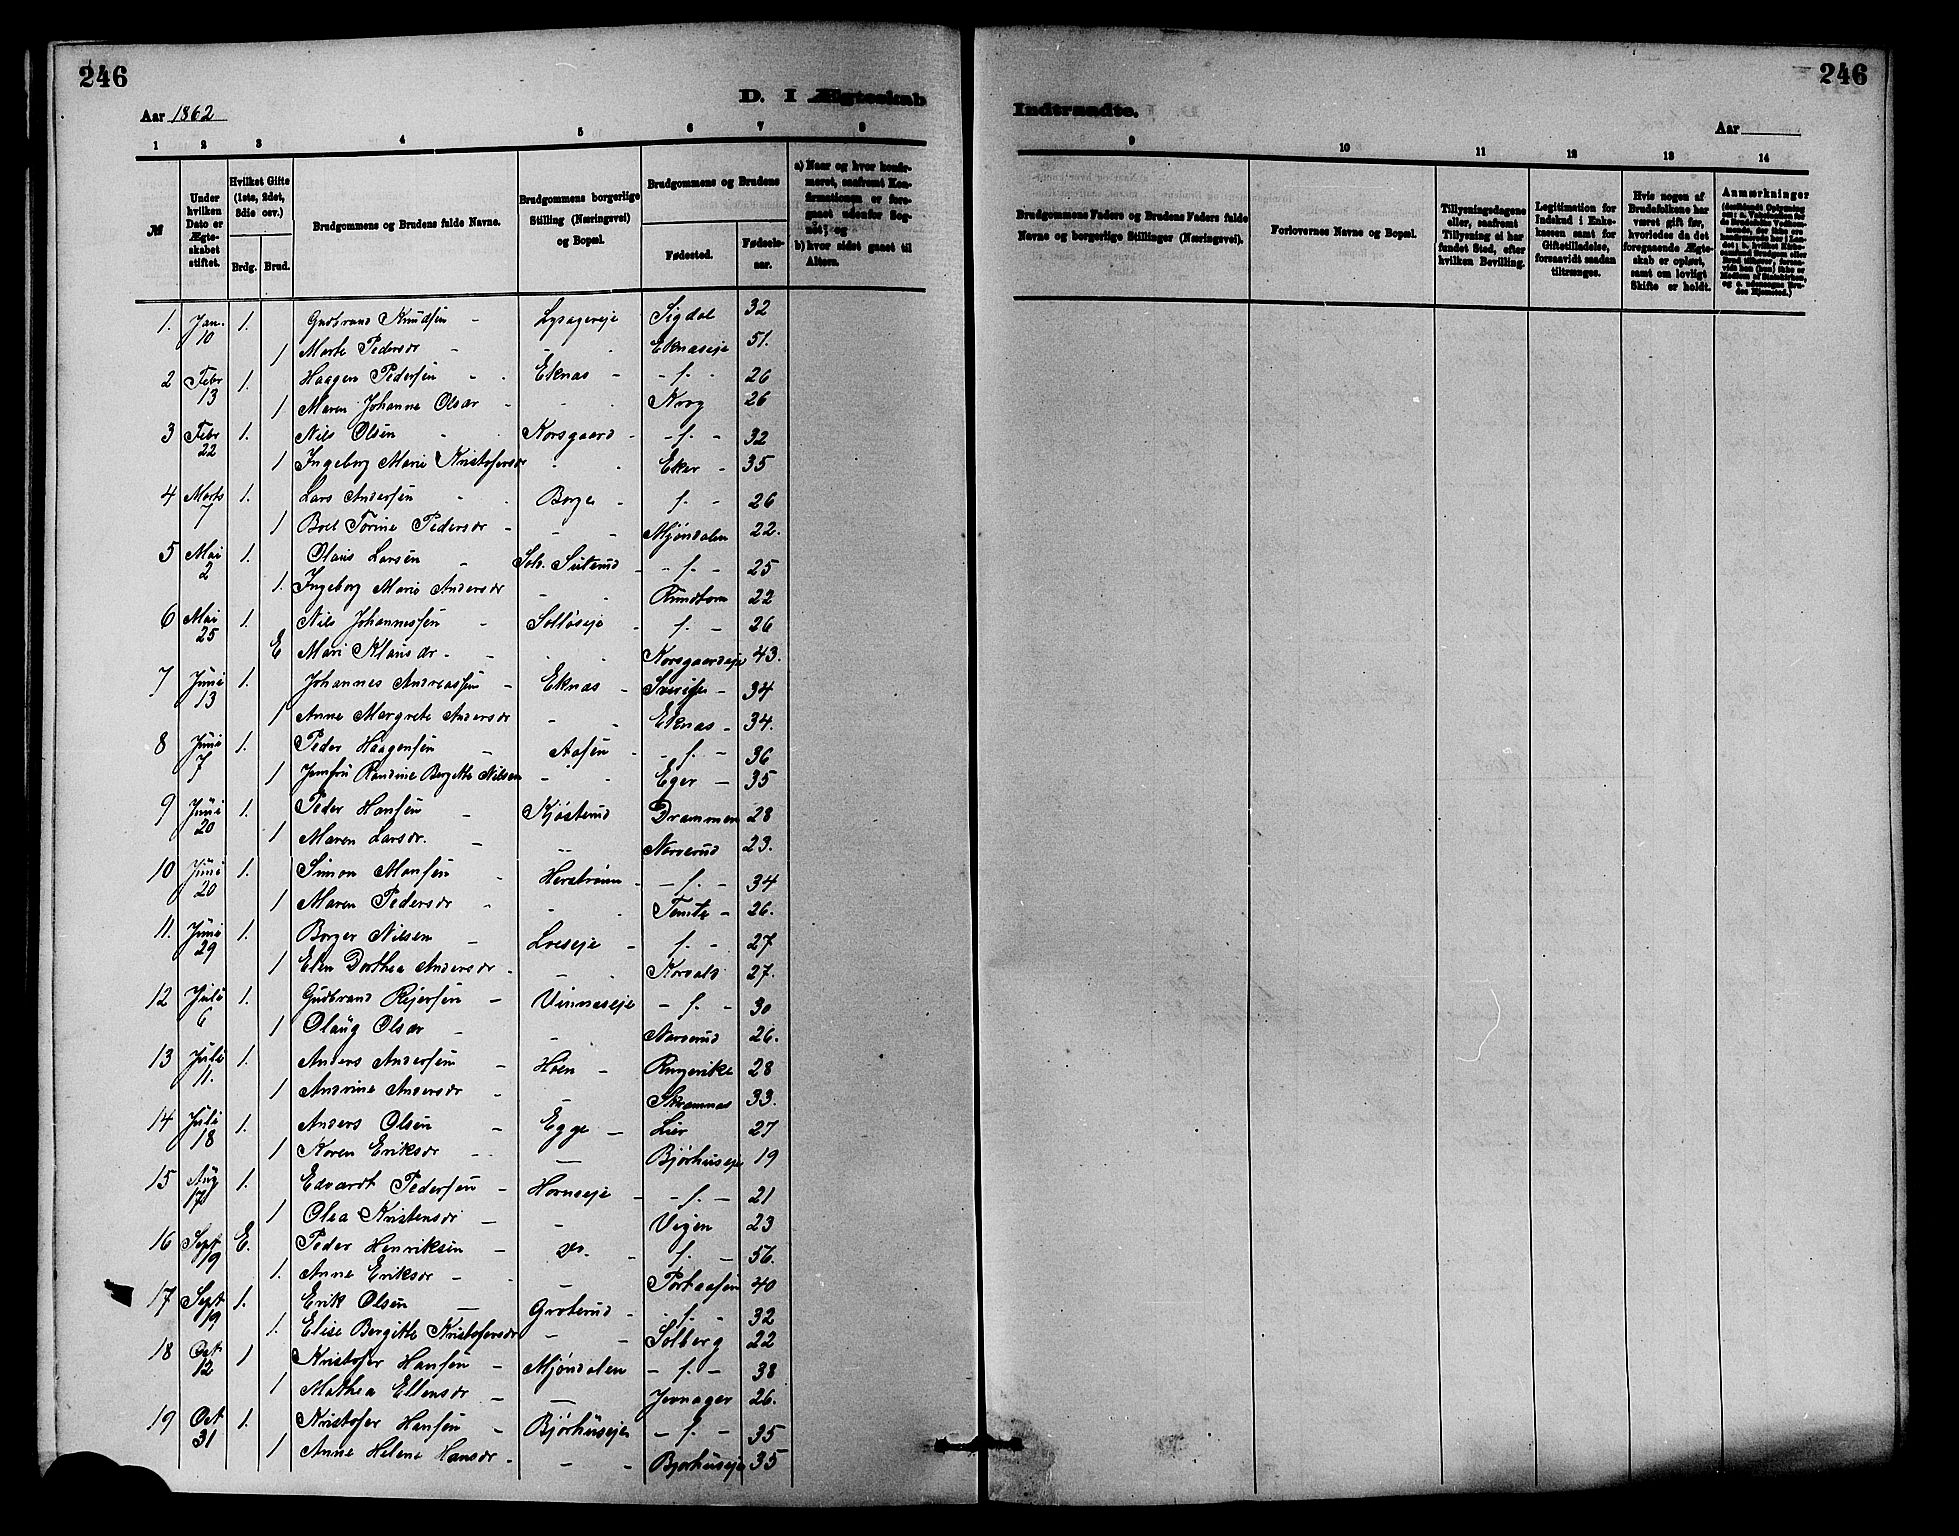 246
246
D. I Ægteskab
Indtraadte.
Aar 1862
Aar
1 2 3 4 5 6 7 8
9 10 11 12 13 14
№
Under hvilken Dato er Ægteskabet stiftet.
Hvilket Gifte (1ste, 2det, 3die osv.)
Brdg. Brud.
Brudgommens og Brudens fulde Navne.
Brudgommens borgerlige Stilling (Næringsvei) og Bopæl.
Brudgommens og Brudens
Fødested.
Fødselsaar.
a) Naar og hvor konfirmeret, saafremt Konfirmationen er foregaaet udenfor Sognet; og
b) hvor sidst gaaet til Altern.
Brudgommens Faders og Brudens Faders fulde Navne og borgerlige Stillinger (Næringsvei).
Forlovernes Navne og Bopæl.
Tillysningsdagene eller, saafremt Tillysning ei har fundet Sted, efter hvilken Bevilling.
Legitimation for Indskud i Enkekassen samt for Giftetilladelse, forsaavidt saadan tiltrænges.
Hvis nogen af Brudefolkene har været gift før, hvorledes da det foregaaende Ægteskab er opløst, samt om lovligt Skifte er holdt.
Anmærkninger
1. Jan. 10 1. Gudbrand Knudsen - Lysagereje Sigdal 32
1 Marte Pedersdr - Eknaseje 51.
2 Febr 13 1. Haagen Pedersen - Eknas - - f. - 26
1 Maren Johanne Olsdr - Krog 26
3 Febr 22 1. Nils Olsen - Korsgaard - - f. - 32
1 Ingeborg Marie Kristofersdr - Eker - 35
4 Marts 7 1. Lars Andersen - Borge - f. - 26
1 Boel Torine Pedersdr - Mjøndalen 22.
5 Mai 2 1. Olaus Larsen - - f. - 25
1. Ingeborg Marie Andersdr - Rundtom 22
6 Mai 25 1. Nils Johannesen - Solløseje - f. - 26
E Mari Klausdr. - Korsgaardseje 43.
7 Juni 13 1. Johannes Andreassen - Eknas - Sverige - 34
1 Anne Margrete Andersdr - Eknas - 34.
8 Juni 7 1. Peder Haagensen - Aasen - - f. - 36
1 Jomfru Randine Bergitte Nilsen - Eger - 35
9 Juni 20 1. Peder Hansen - Kjøsterud Drammen 28
1 Maren Larsdr. - Narverud 23.
10 Juni 20 1. Simon Monsen - Herstrøm - - f. - 34
1 Maren Pedersdr - Tomte - 26.
11. Juni 29 1. Borger Nilsen - Loeseje - f. - 27
1 Elen Dorthea Andersdr - Korvald 27.
12 Juli 6 1. Gudbrand Rejersen - Vinnaseje - f. - 30
1 Olaug Olsdr - Narverud 26.
13 Juli 11. 1. Anders Andersen - Hoen - Ringerike 28
1 Andrine Andersdr - Skramnas 33.
14 Juli 18 1. Anders Olsen - Egge - Lier 27
1 Karen Eriksdr - Bjørhuseje 19
15 Aug 17 1. Edvardt Pedersen - Hornseje - - f. - 21
1 Olea Kristensdr - Vegen 23
16 Sept 19 E. Peder Henriksen - - f. - 56.
1. Anne Eriksdr - Portaasen 40
17 Sept 19 1. Erik Olsen - Groterud - - f. - 32
1. Elise Bergitte Kristofersdr - Solberg 22
18 Oct 12 1 Kristofer Hansen - Mjøndalen - f. - 38
1 Mathea Ellensdr - Jevnager 26.
19 Oct 31 1. Kristofer Hansen - Bjørhuseje - f. - 35
1 Anne Helene Hansdr. - Bjorhuseje 35